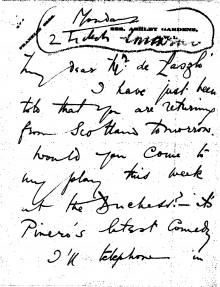 Monday
2 Tickets
ASHLEY GARDENS.
My dear Mr de Laszlo
I have just been
told that you are returning
from Scotland tomorrow
would you come to
my play this week
at the Duchess? – its
Pinero's latest Comedy
I'll telephone in